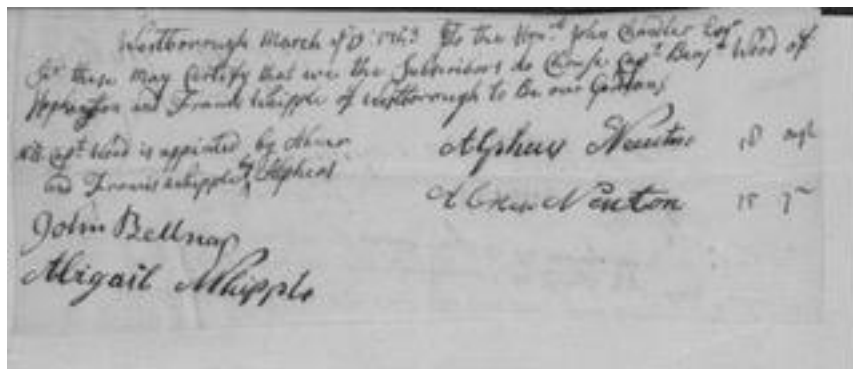 Westborough March ye 1763 To the Honr John Chandler Esqr
Sir these may Certify that we the Subscribers do Chuse Capt Benjn Wood of
Hopkinton and Francis Whipple of Westborough to be our Gardons
NB Capt Wood is appointed by Abner
and Francis Whipple by Alpheus
Alpheus Newton 18
Abner Newton 15
John Bellnap
Abigail Whipple